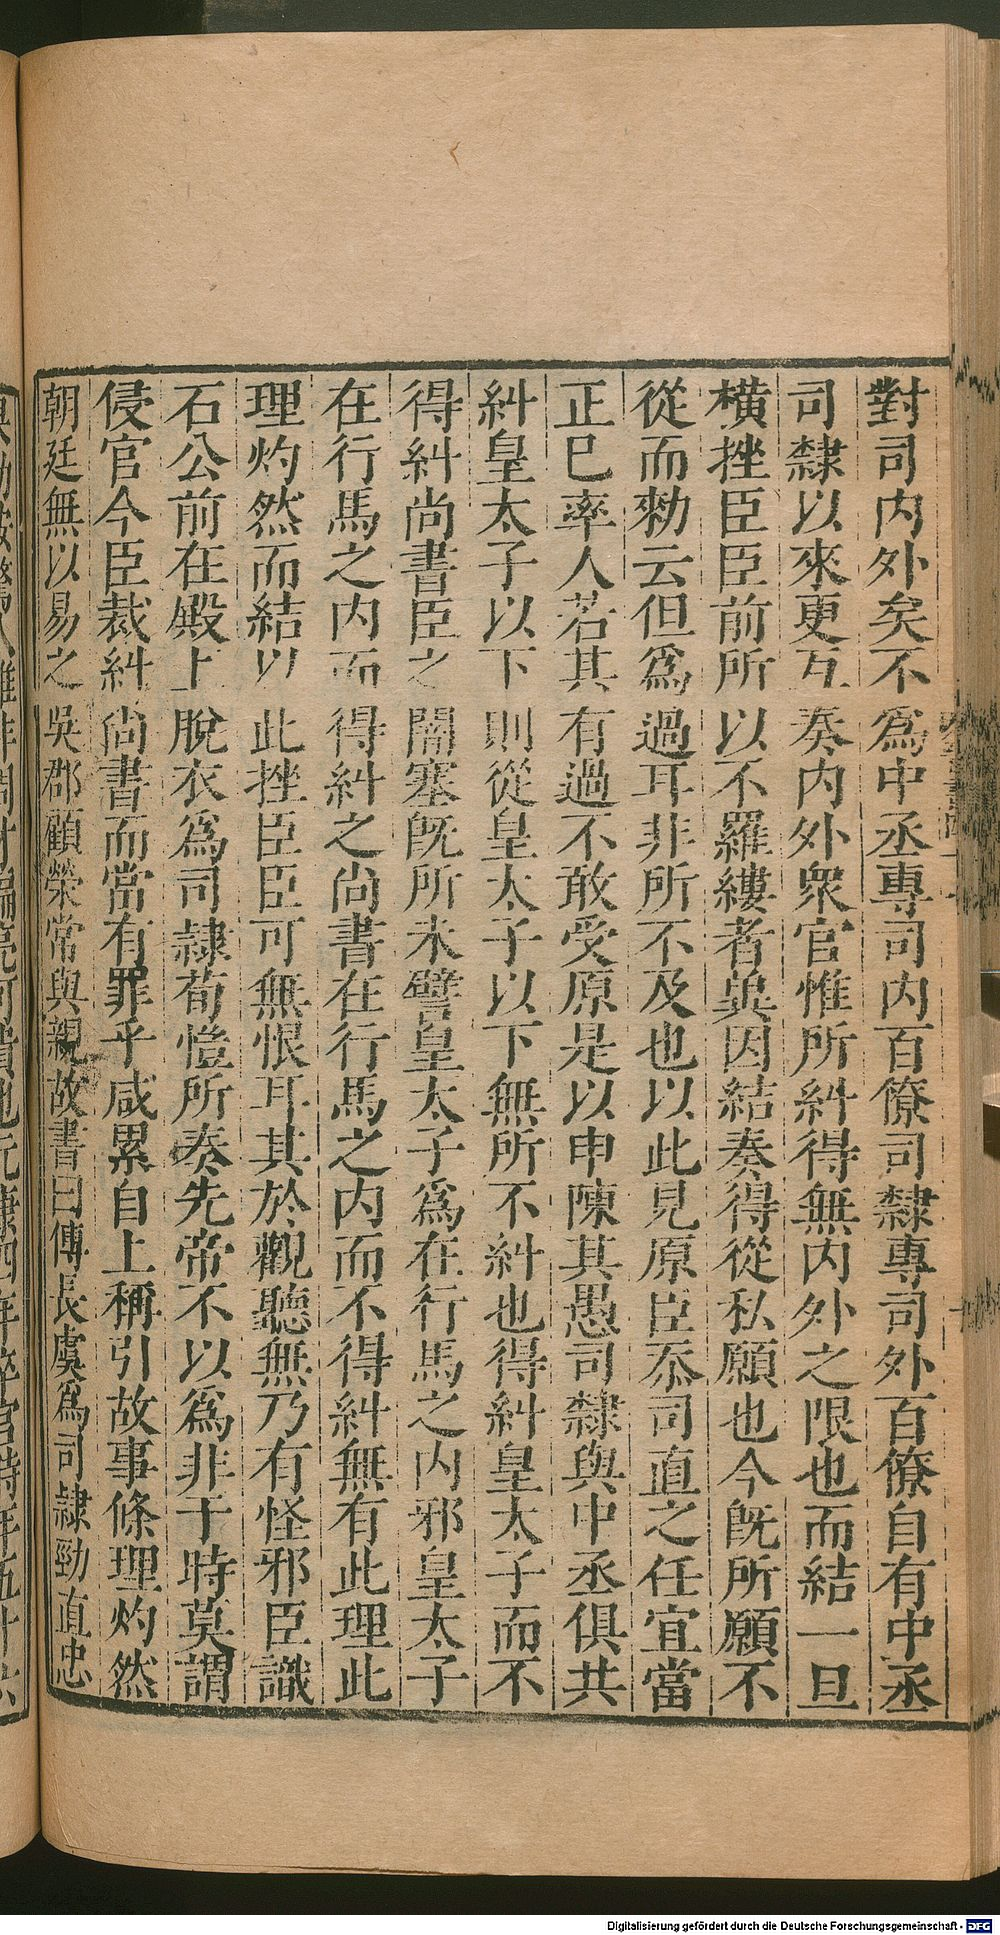 對司内外矣不爲中丞專司内百僚司隸專司外百僚自有中丞
司隸以來更互奏内外衆官惟所糾得無内外之限也而結一旦
橫挫臣臣前所以不羅縷者兾因結奏得從私願也今旣所願不
從而勑云但爲過耳非所不及也以此見原臣忝司直之任宜當
正巳率人若其有過不敢受原是以申陳其愚司隸與中丞俱共
糾皇太子以下則從皇太子以下無所不糾也得糾皇太子而不
得糾尚書臣之闇塞旣所未譬皇太子爲在行馬之内邪皇太子
在行馬之内而得糾之尚書在行馬之内而不得糾無有此理此
理灼然而結以此挫臣臣可無恨耳其於觀聽無乃有怪邪臣識
石公前在殿上脫衣爲司隸荀愷所奏先帝不以爲非于時莫謂
侵官今臣裁糾尚書而當有罪乎咸累自上稱引故事條理灼然
朝廷無以易之吳郡顧榮常與親故書曰傳長虞爲司隸勁直忠
Digitalisierung gefördert durch die Deutsche Forschungsgemeinschaft - DFG